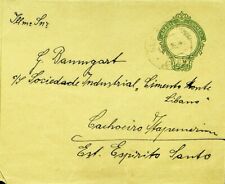 Illmo Snr
G. Baumgart
a/c Sociedade Industrial, "Cimento Monte
Libano"
Cachoeiro Itapemirim
Est. Espirito Santo